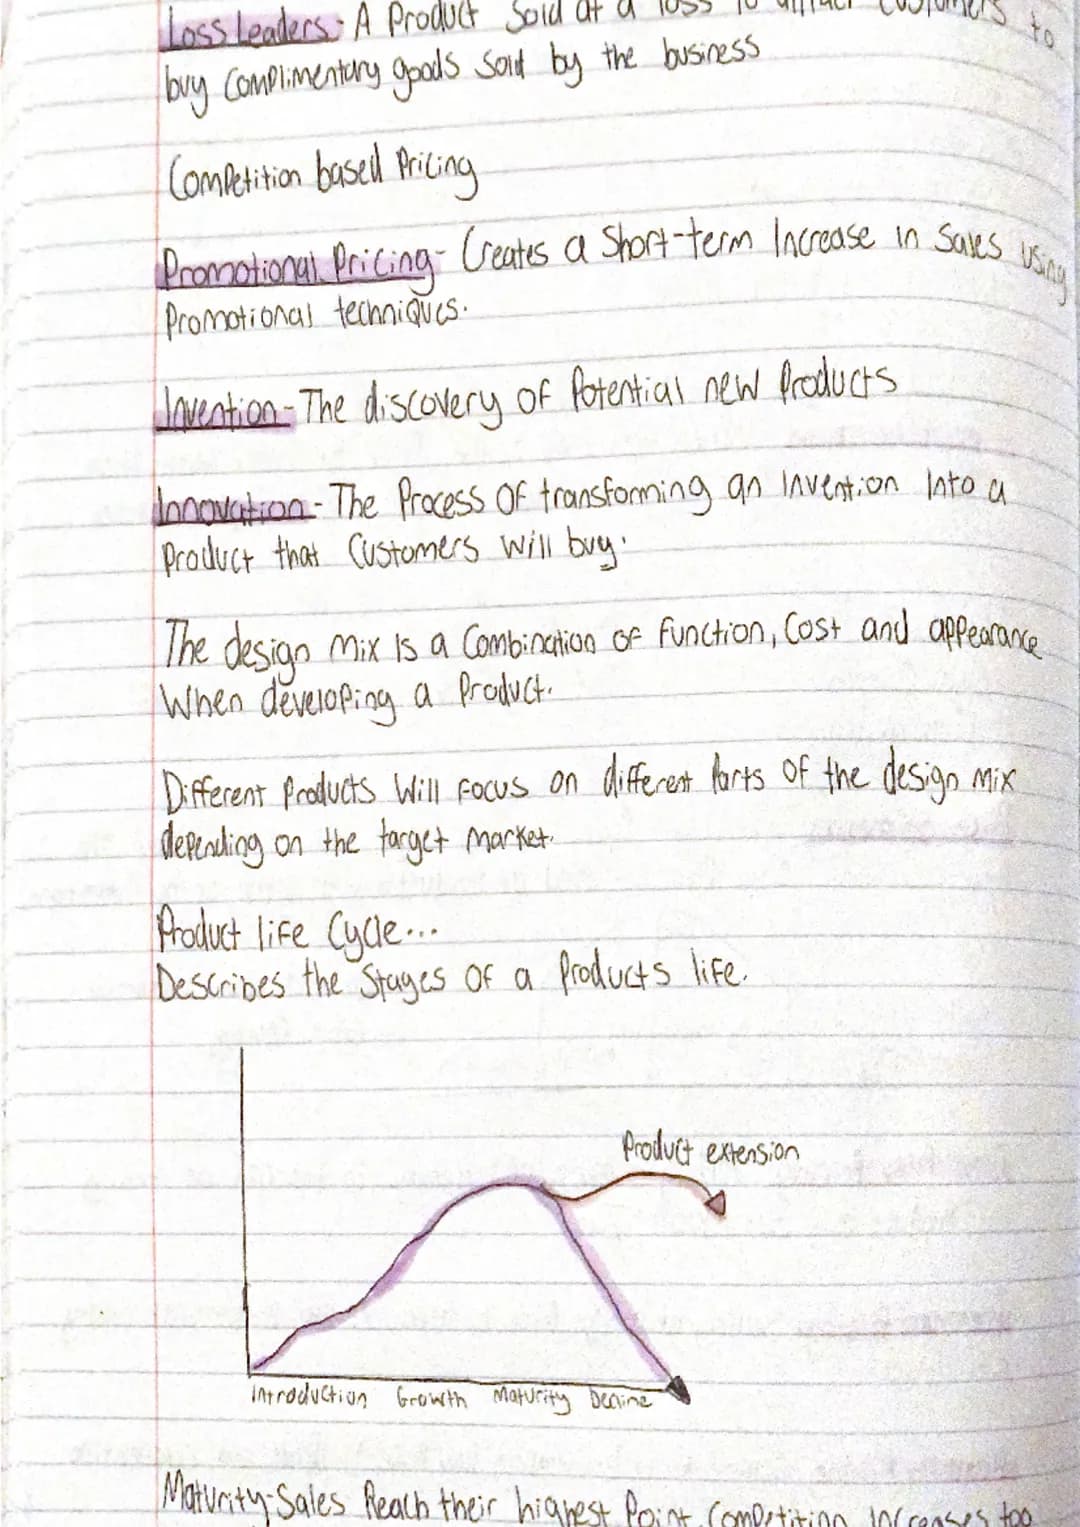 Loss Leaders - A Product Sold at a loss to attract customers to
buy Complimentary goods sold by the business
Competition based Pricing
Promotional Pricing - Creates a Short-term Increase in Sales using
Promotional techniques.
Invention - The discovery of Potential new Products
Innovation - The Process Of transforming an Invention Into a
Product that Customers Will buy.
The design Mix Is a Combination of Function, Cost and appearance
When developing a Product.
Different Products Will Focus on different Parts Of the design mix
depending on the target Market.
Product life Cycle...
Describes the Stages Of a Products life.
Product extension
Introduction Growth Maturity Decline
Maturity - Sales Reach their highest Point. Competition Increases too